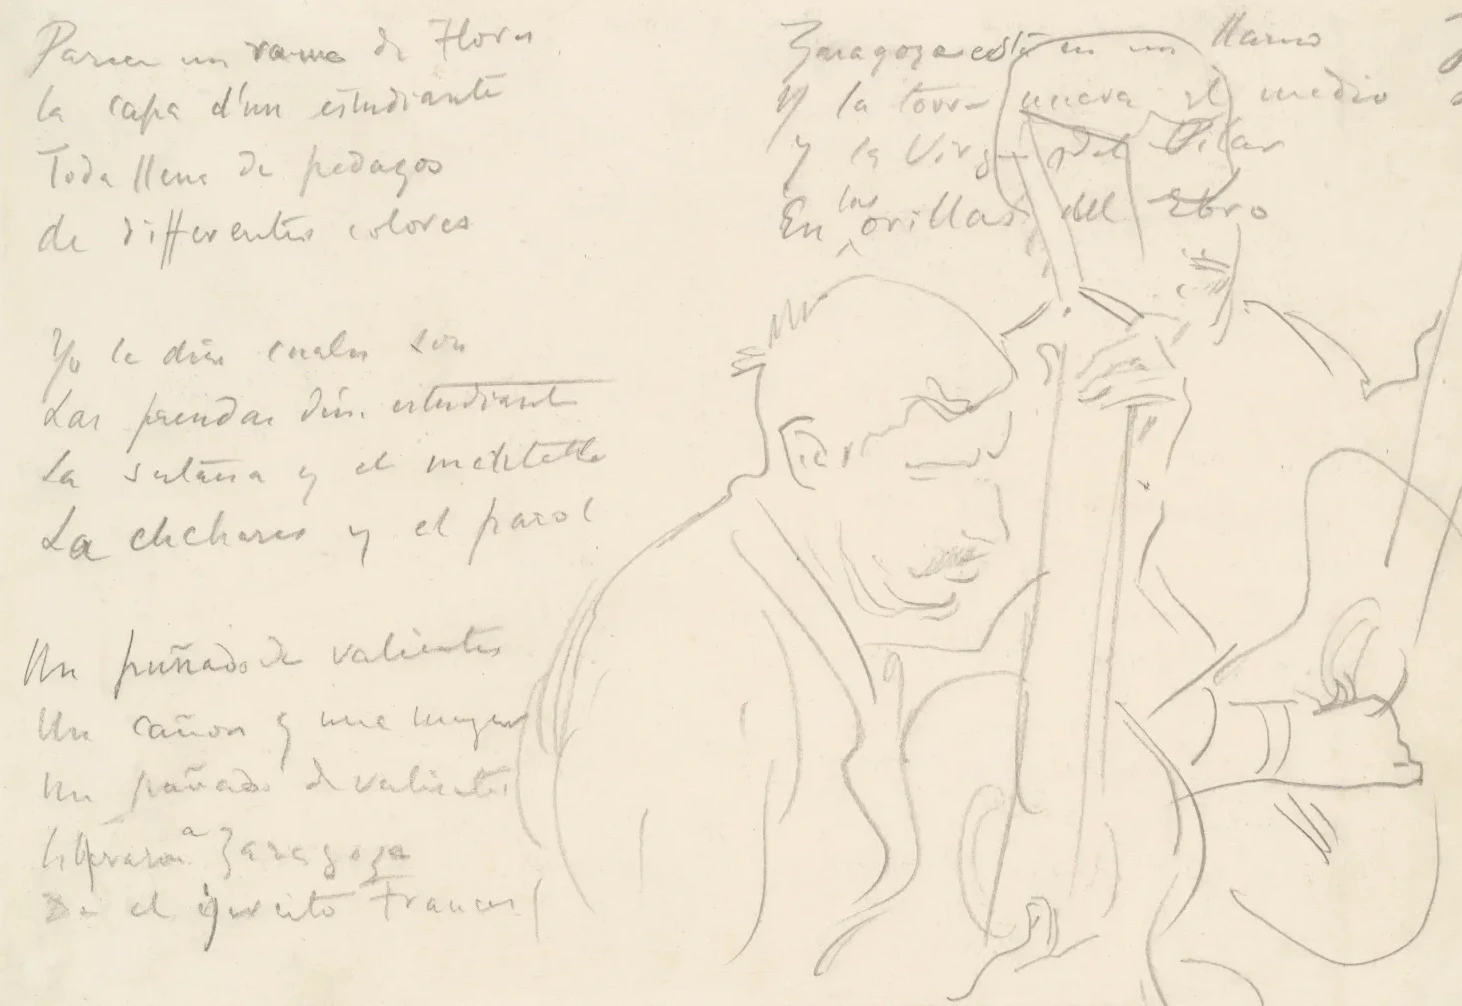 Parece un ramo de Flores
la capa d'un estudiante
Toda llena de pedazos
de differentes colores
Yo le diré cuales son
Las prendas d'un estudiante
La sotana y el
La y el
Un puñado de valientes
Un cañon y une mujer
Un puñado de valientes
liberaron a Zaragoza
De el ejercito Frances
Zaragoza está en un llano
Y la torre nueva el medio
y la Virgen del Pilar
En las orillas del Ebro